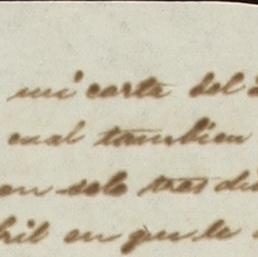 mi carta del
cual tambien
en solo tres di
bril en que le